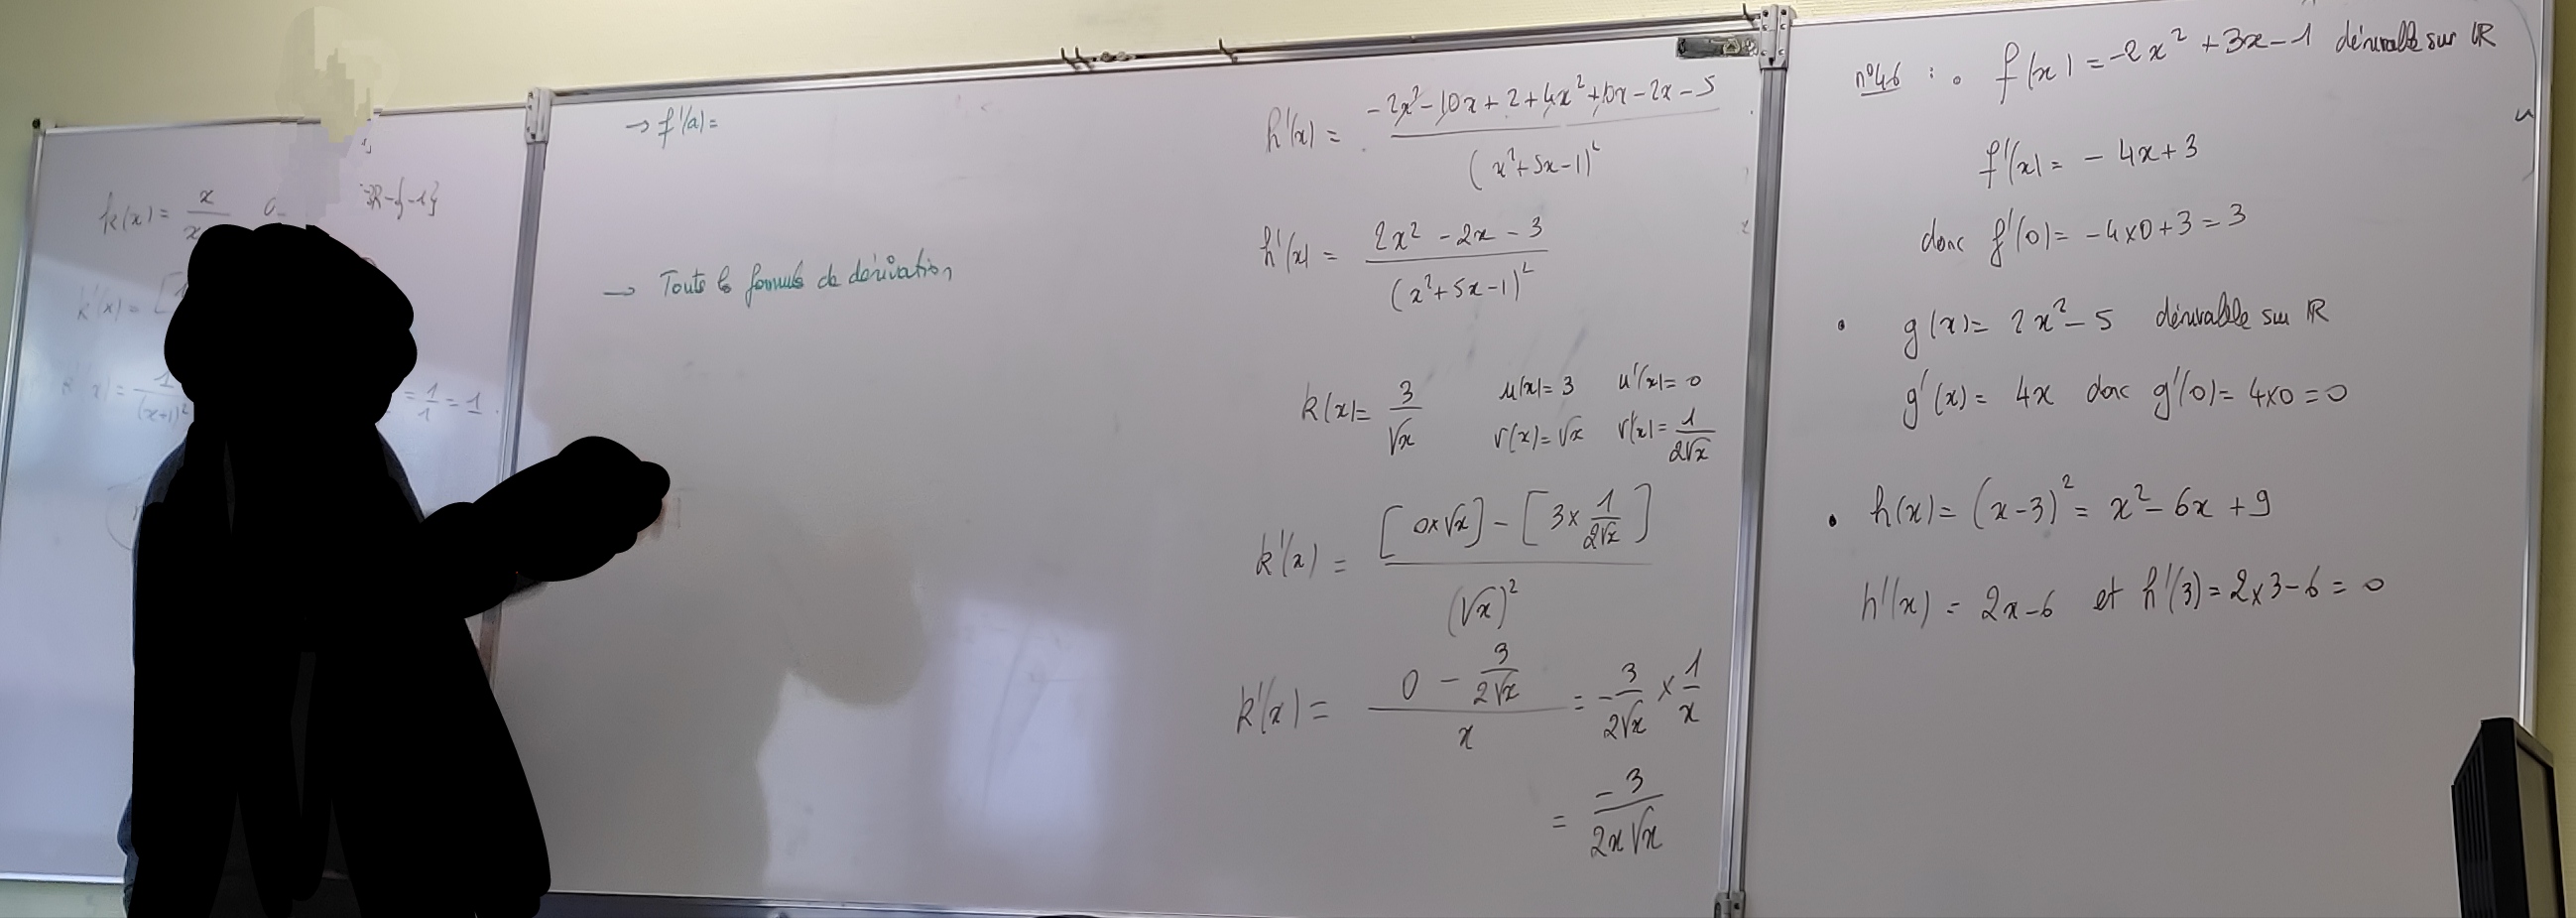 k(x) = x/x
ℝ-{-1}
k'(x) = [1
'(x) = 1/(x+1)² = 1/1 = 1.
→ f'(a) =
→ Toute les formules de dérivation
h'(x) = (-2x²-10x+2+4x²+10x-2x-5)/(x²+5x-1)²
h'(x) = (2x²-2x-3)/(x²+5x-1)²
k(x) = 3/√x u(x) = 3 u'(x) = 0
v(x) = √x v'(x) = 1/(2√x)
k'(x) = ([0×√x] - [3×1/(2√x)])/(√x)²
k'(x) = (0 - 3/(2√x))/x = -3/(2√x) × 1/x
= -3/(2x√x)
n°46 : • f(x) = -2x²+3x-1 dérivable sur ℝ
f'(x) = -4x+3
donc f'(0) = -4×0+3 = 3
• g(x) = 2x²-5 dérivable sur ℝ
g'(x) = 4x donc g'(0) = 4×0 = 0
• h(x) = (x-3)² = x²-6x+9
h'(x) = 2x-6 et h'(3) = 2×3-6 = 0